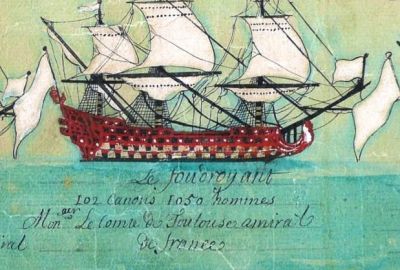 Le foudroyant
102 Canons 1050 hommes
Mon^aer Le Comte de Toulouse amiral
de france
ral